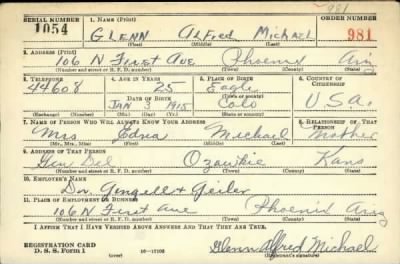 981
SERIAL NUMBER 1. NAME (Print) ORDER NUMBER
1054 GLENN Alfred Michael 981
(First) (Middle) (Last)
2. ADDRESS (Print)
106 N First Ave Phoenix Ariz
(Number and street or R. F. D. number) (Town) (County) (State)
3. TELEPHONE 4. AGE IN YEARS 5. PLACE OF BIRTH 6. COUNTRY OF CITIZENSHIP
44608 25 Eagle
DATE OF BIRTH (Town or county)
JAN 3 1915 Colo U.S.A.
(Exchange) (Number) (Mo.) (Day) (Yr.) (State or country)
7. NAME OF PERSON WHO WILL ALWAYS KNOW YOUR ADDRESS 8. RELATIONSHIP OF THAT PERSON
Mrs Edna Michael Mother
(Mr., Mrs., Miss) (First) (Middle) (Last)
9. ADDRESS OF THAT PERSON
Gen Del Ozawkie Kans
(Number and street or R. F. D. number) (Town) (County) (State)
10. EMPLOYER'S NAME
Dr. &
11. PLACE OF EMPLOYMENT OR BUSINESS
106 N First Ave Phoenix Ariz
(Number and street or R. F. D. number) (Town) (County) (State)
I AFFIRM THAT I HAVE VERIFIED ABOVE ANSWERS AND THAT THEY ARE TRUE.
REGISTRATION CARD
D. S. S. Form 1 (over) Glenn Alfred Michael
(Registrant's signature)